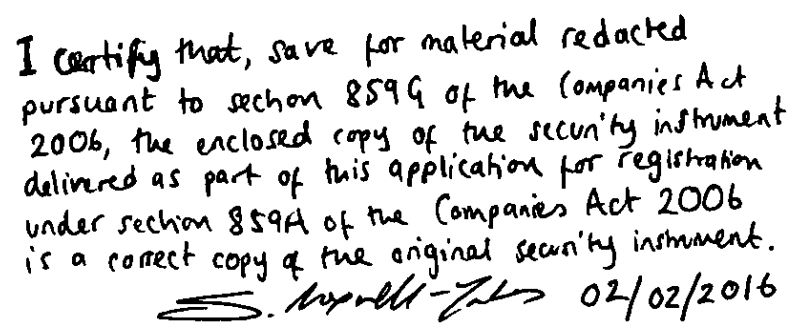 I certify that, save for material redacted
pursuant to section 859G of the Companies Act
2006, the enclosed copy of the security instrument
delivered as part of this application for registration
under section 859A of the Companies Act 2006
is a correct copy of the original security instrument.
S. 02/02/2016